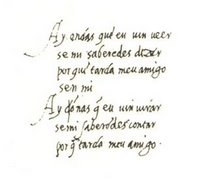 Ay ondas que eu uin ueer
se mi saberedes dizer
por que tarda meu amigo
sen mi
Ay ondas q̃ eu uin mirar
se mi saberedes contar
por q̃ tarda meu amigo.